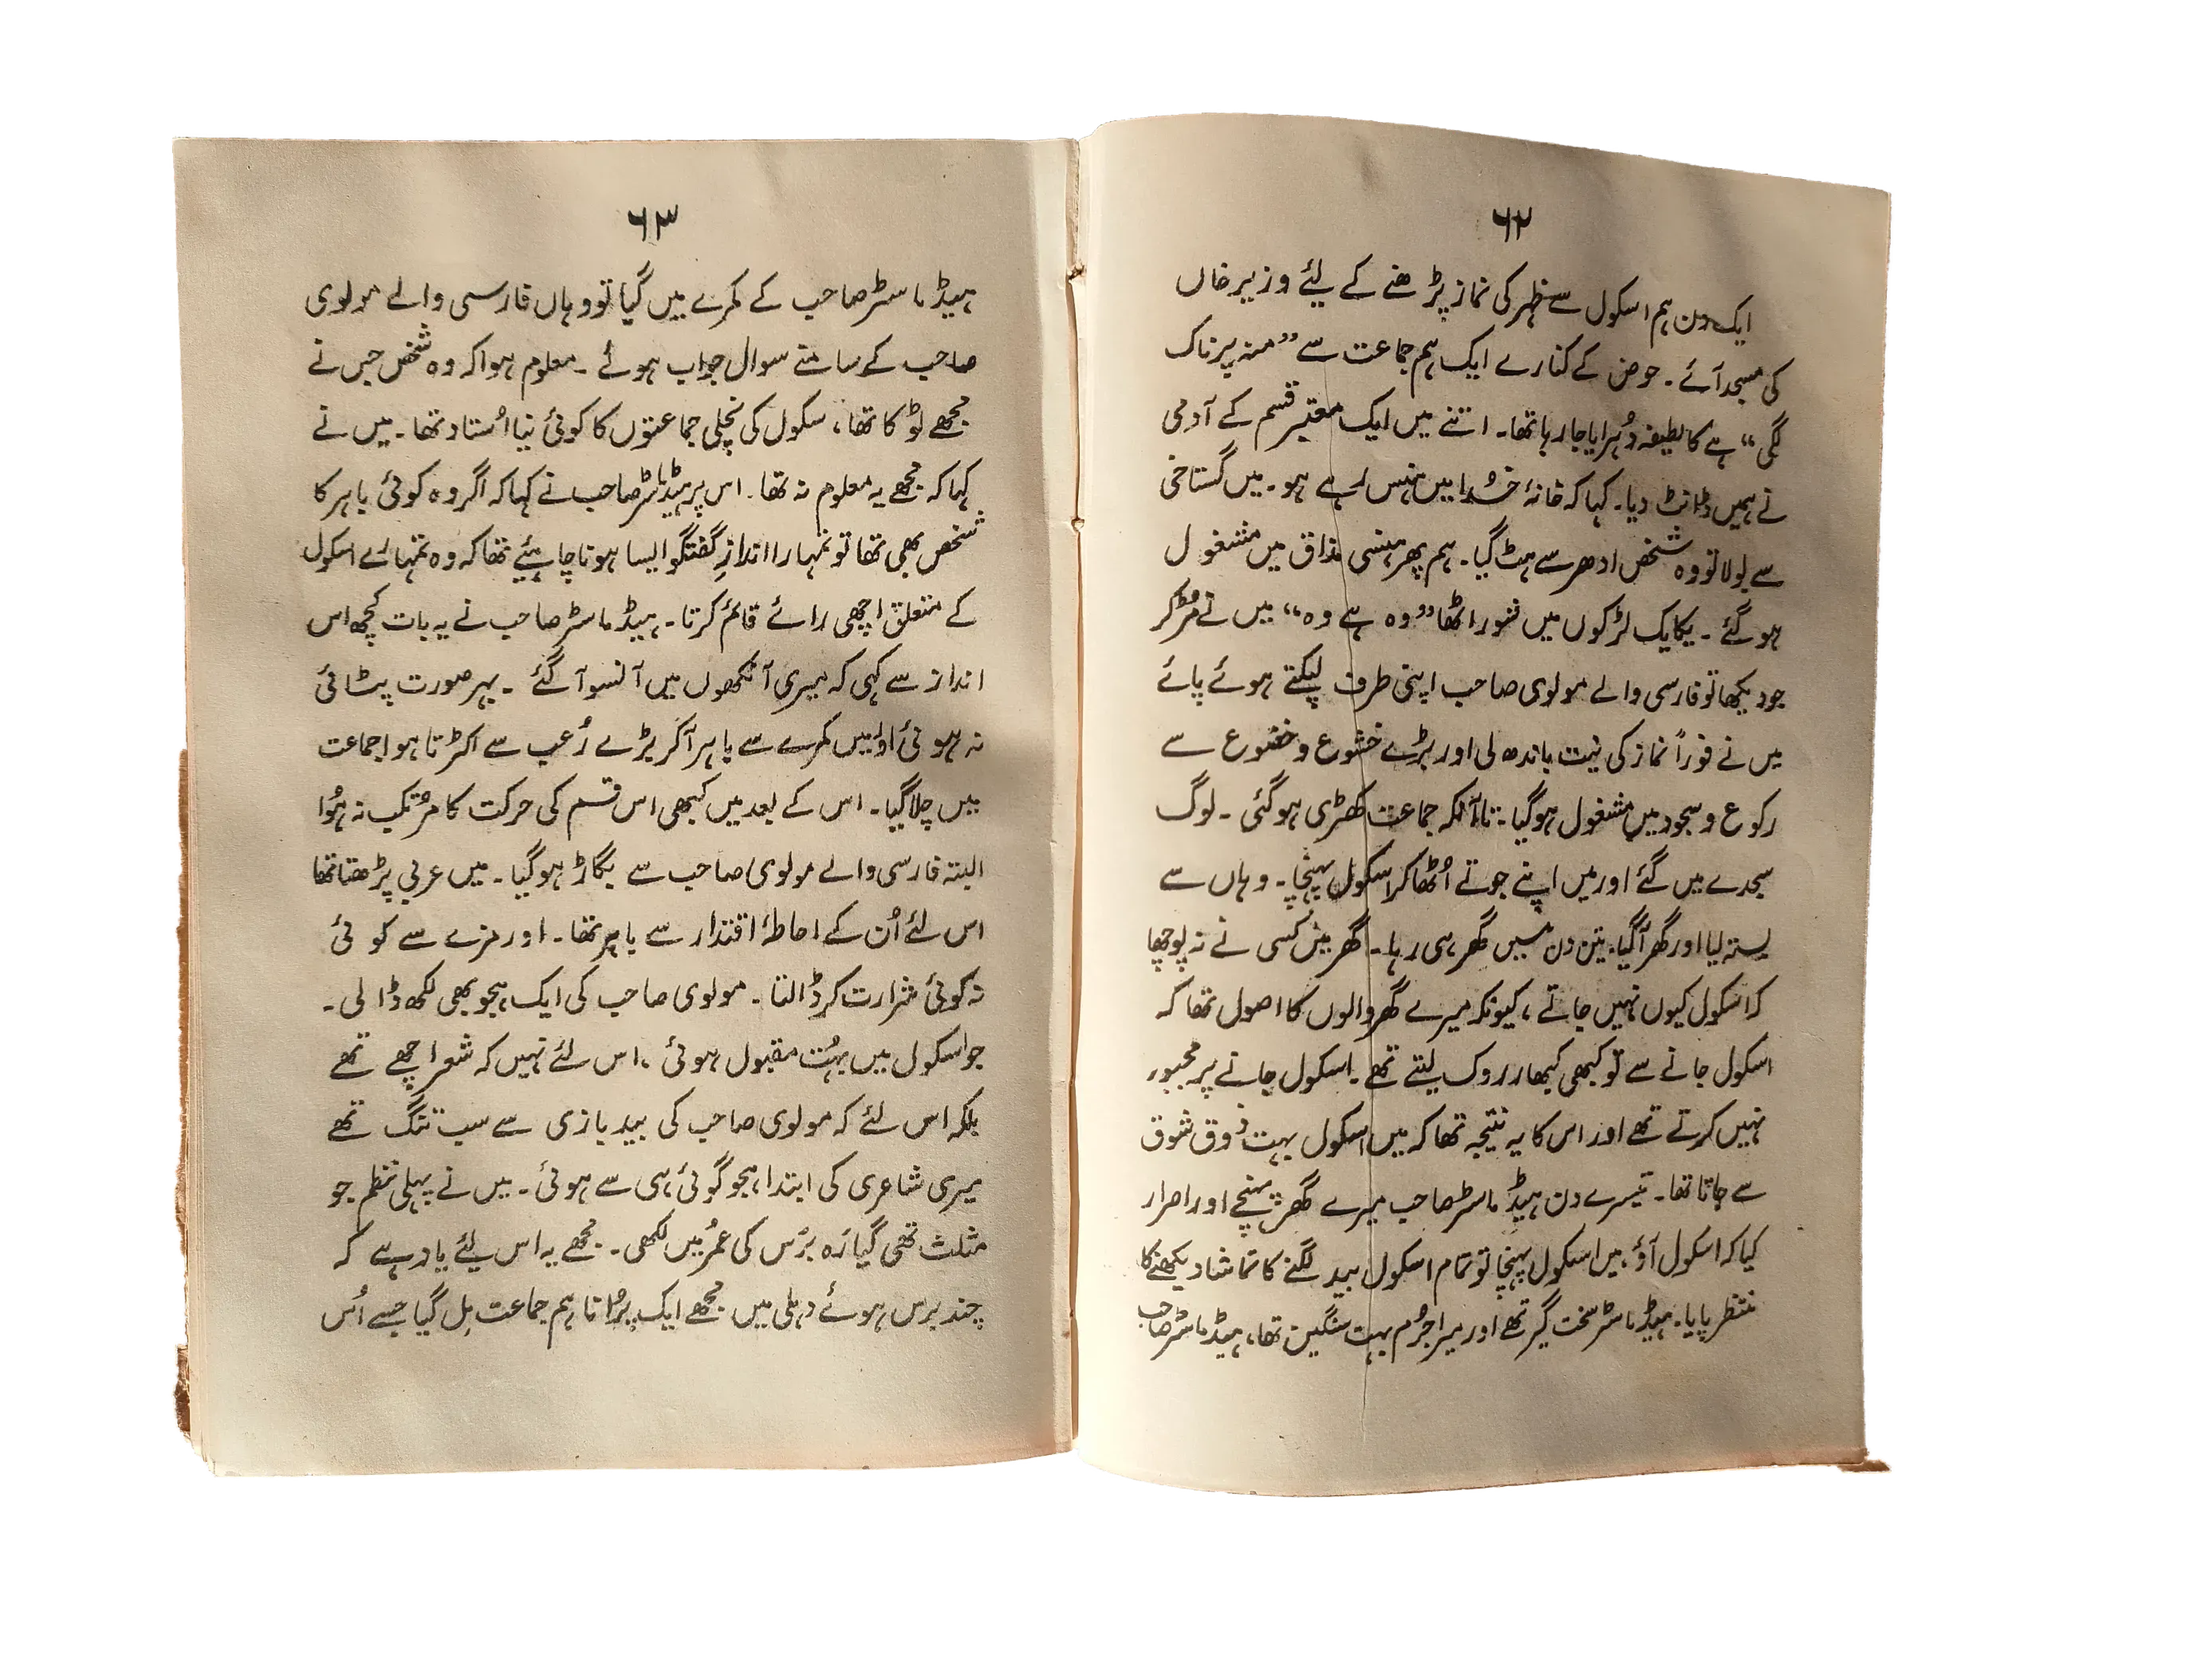 ۶۲
ایک دن ہم اسکول سے ظہر کی نماز پڑھنے کے لیئے وزیر خاں
کی مسجد آئے۔ حوض کے کنارے ایک ہم جماعت سے ”منہ پر ناک
لگی“ ہے کا لطیفہ دُہرایا جا رہا تھا۔ اتنے میں ایک معتبر قسم کے آدمی
نے ہمیں ڈانٹ دیا۔ کہا کہ خانۂ خُدا میں ہنس رہے ہو۔ میں گستاخی
سے بولا تو وہ شخص ادھر سے ہٹ گیا۔ ہم پھر ہنسی مذاق میں مشغول
ہو گئے ۔ یکایک لڑکوں میں شور اٹھا ”وہ ہے وہ“ میں نے مُڑ کر
جو دیکھا تو فارسی والے مولوی صاحب اپنی طرف لپکتے ہوئے پائے
میں نے فوراً نماز کی نیت باندھ لی اور بڑے خشوع و خضوع سے
رکوع و سجود میں مشغول ہو گیا۔ تاآنکہ جماعت کھڑی ہو گئی ۔ لوگ
سجدے میں گئے اور میں اپنے جوتے اُٹھا کر اسکول پہنچا۔ وہاں سے
بستہ لیا اور گھر آ گیا۔ تین دن میں گھر ہی رہا۔ گھر میں کسی نے نہ پوچھا
کہ اسکول کیوں نہیں جاتے ، کیونکہ میرے گھر والوں کا اصول تھا کہ
اسکول جانے سے تو کبھی کبھار روک لیتے تھے۔ اسکول جانے پر مجبور
نہیں کرتے تھے اور اس کا یہ نتیجہ تھا کہ میں اسکول بہت ذوق شوق
سے جاتا تھا۔ تیسرے دن ہیڈ ماسٹر صاحب میرے گھر پہنچے اور اصرار
کیا کہ اسکول آؤ۔ میں اسکول پہنچا تو تمام اسکول بید لگنے کا تماشا دیکھنے کا
منتظر پایا۔ ہیڈ ماسٹر سخت گیر تھے اور میرا جُرم بہت سنگین تھا، ہیڈ ماسٹر صاحب
۶۳
ہیڈ ماسٹر صاحب کے کمرے میں گیا تو وہاں فارسی والے مولوی
صاحب کے سامنے سوال جواب ہوئے ۔ معلوم ہوا کہ وہ شخص جس نے
مجھے ٹوکا تھا، سکول کی نچلی جماعتوں کا کوئی نیا اُستاد تھا۔ میں نے
کہا کہ مجھے یہ معلوم نہ تھا۔ اس پر ہیڈ ماسٹر صاحب نے کہا کہ اگر وہ کوئی باہر کا
شخص بھی تھا تو تمہارا اندازِ گفتگو ایسا ہونا چاہیئے تھا کہ وہ تمہارے اسکول
کے متعلق اچھی رائے قائم کرتا۔ ہیڈ ماسٹر صاحب نے یہ بات کچھ اس
انداز سے کہی کہ میری آنکھوں میں آنسو آ گئے ۔ بہر صورت پٹائی
نہ ہوئی اور میں کمرے سے باہر آ کر بڑے رُعب سے اکڑتا ہوا جماعت
میں چلا گیا۔ اس کے بعد میں کبھی اس قسم کی حرکت کا مُرتکب نہ ہُوا
البتہ فارسی والے مولوی صاحب سے بگاڑ ہو گیا۔ میں عربی پڑھتا تھا
اس لئے اُن کے احاطۂ اقتدار سے باہر تھا۔ اور مزے سے کوئی
نہ کوئی شرارت کر ڈالتا ۔ مولوی صاحب کی ایک ہجو بھی لکھ ڈالی ۔
جو اسکول میں بہُت مقبول ہوئی ، اس لئے نہیں کہ شعر اچھے تھے
بلکہ اس لئے کہ مولوی صاحب کی بید بازی سے سب تنگ تھے
میری شاعری کی ابتدا ہجو گوئی ہی سے ہوئی۔ میں نے پہلی نظم جو
مثلث تھی گیارہ برس کی عُمر میں لکھی۔ مجھے یہ اس لیئے یاد ہے کہ
چند برس ہوئے دہلی میں مجھے ایک پُرانا ہم جماعت مِل گیا جسے اُس